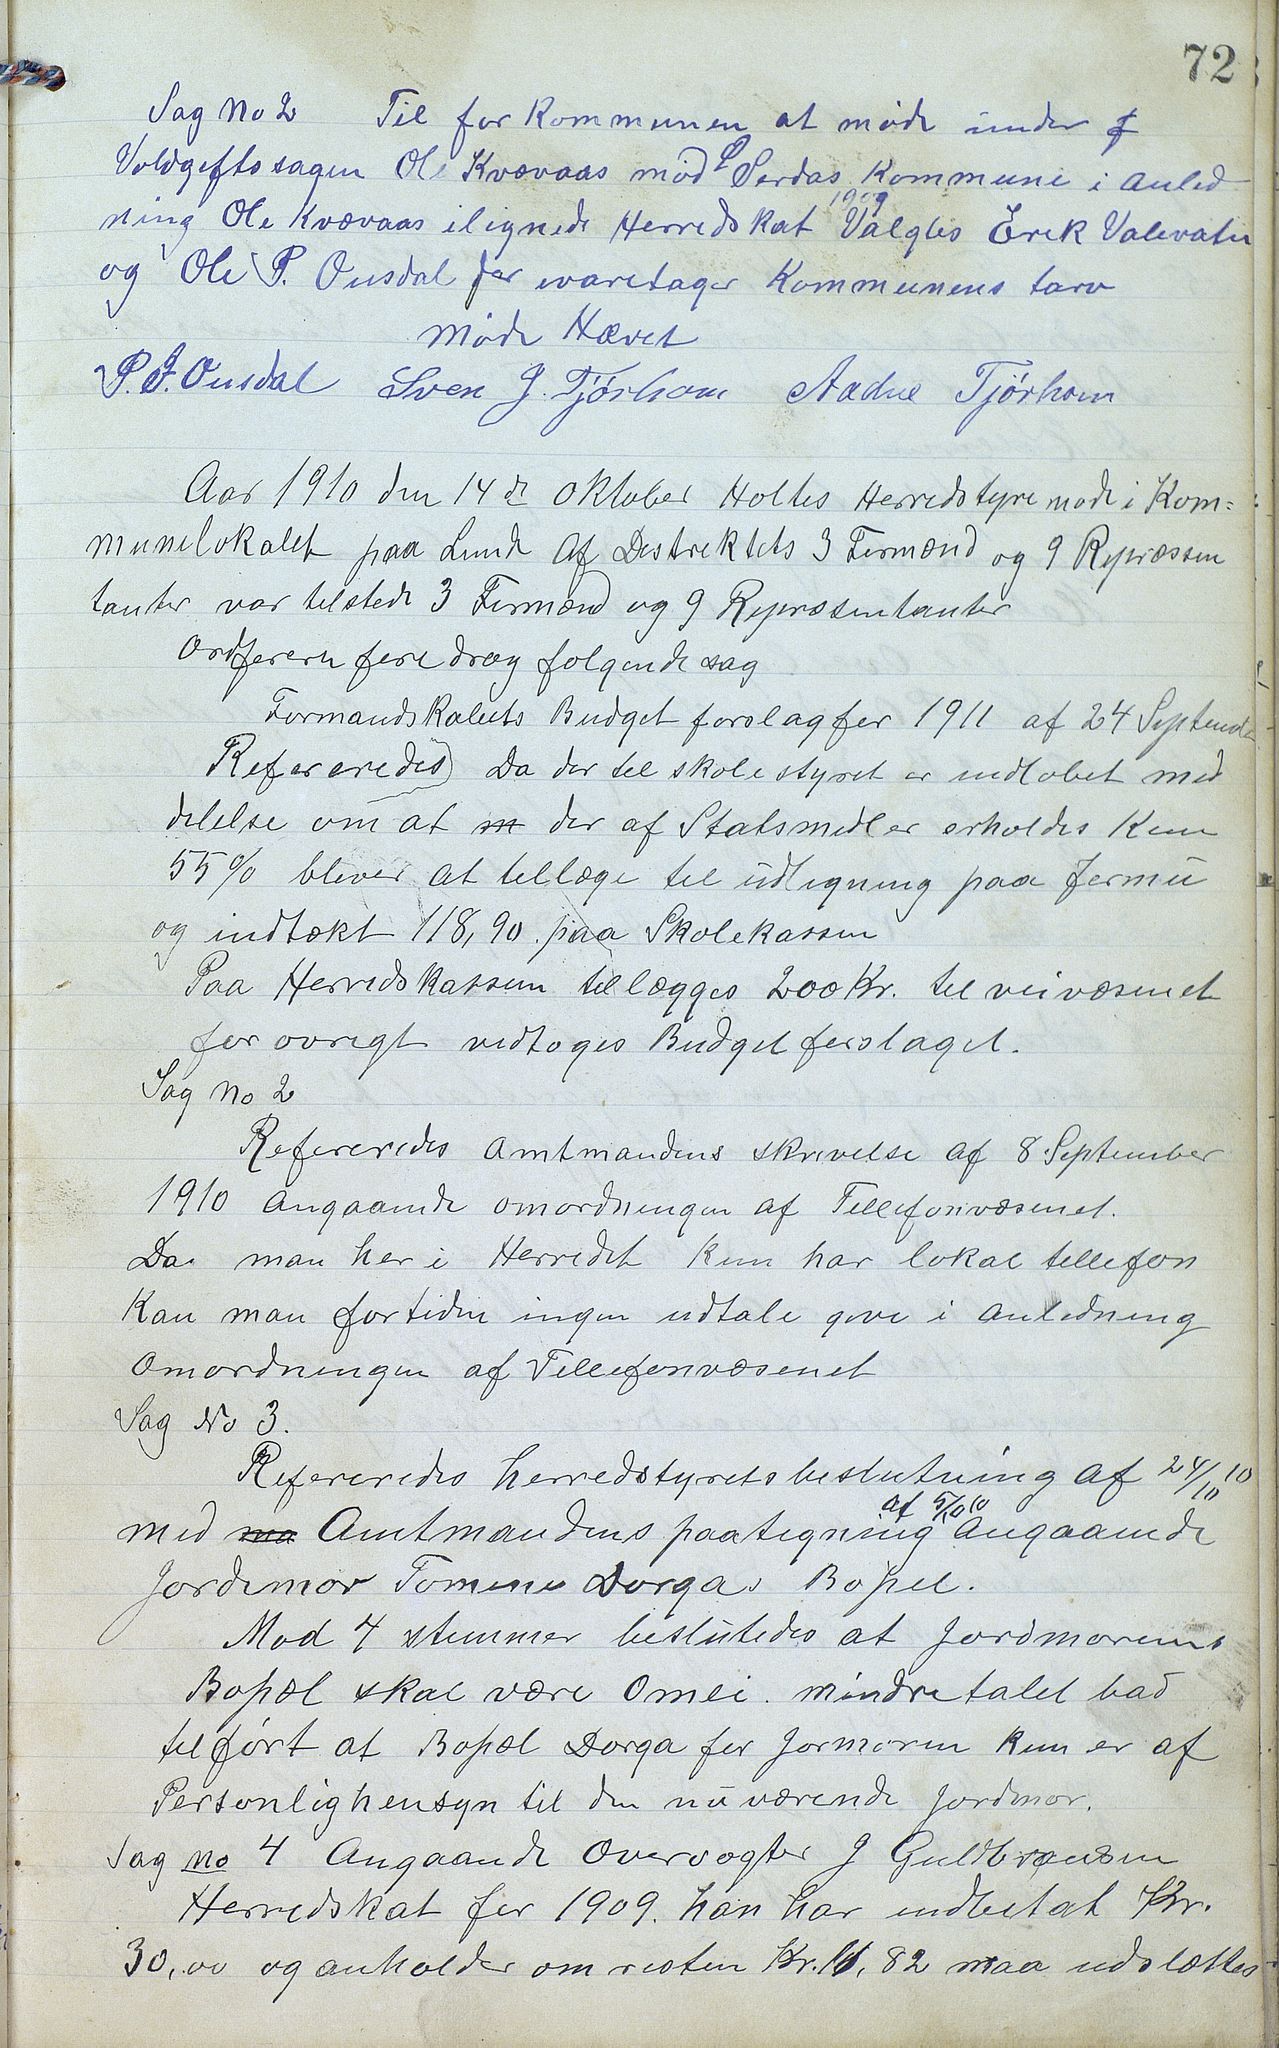 72
Sag No 2 Til for Kommunen at møde under
Voldgiftssagen Ole Kvævaas mod Serdas Kommune i anled
ning Ole Kvævaas ilignede Herredskat 1909 Valgtes Erek Valevatn
og Ole P. Ousdal for ivaretager Kommunens tarv
Møde Hævet
P. J. Ousdal Sven J. Tjørhom Aadne Tjørhom
Aar 1910 den 14de Oktober Holtes Herredstyre møde i Kom=
munelokalet paa Lunde Af Destrektets 3 Formænd og 9 Repræssen
tanter var telstede 3 Formænd og 9 Repræsentanter
Ordføreren foredrog følgende sag
Formandskabets Budget forslag for 1911 af 24 September
Refereredes) Da der tel skolestyret er indløbet med
delelse om at m der af Statsmedler erholdes Kun
55% bliver at tellæge tel udligning paa formu
og indtækt 118,90 paa Skolekassen
Paa Herredskassen tellægges 200 Kr. tel veivæsenet
for øvrigt vedtoges Budgetforslaget.
Sag No 2
Refereredes Amtmandens skrivelse af 8 September
1910 angaaende omordningen af Tellefonvæsenet.
Da man her i Herredet Kun har lokal tellefon
Kan man fortiden ingen udtale give i anledning
Omordningen af Tellefonvæsenet
Sag No 3.
Refereredes herredstyretsbeslutning af 24/10 10
med ma Amtmandens paategning af 5/10 10 angaaende
Jordemor Tomine Dorgas Bopel.
Mod 4 stemmer beslutedes at Jordmorens
Bopæl skal være Omlie. mindretalet bad
telført at Bopæl Dorga for Jormoren Kun er af
Personlighensyn til den nuværende Jordmor.
Sag no 4 Angaaende Overvogter J Guldbransen
Herredskat for 1909. han har indbetalt Kr.
30,00 og anholder om resten Kr. 11,82 maa udslættes